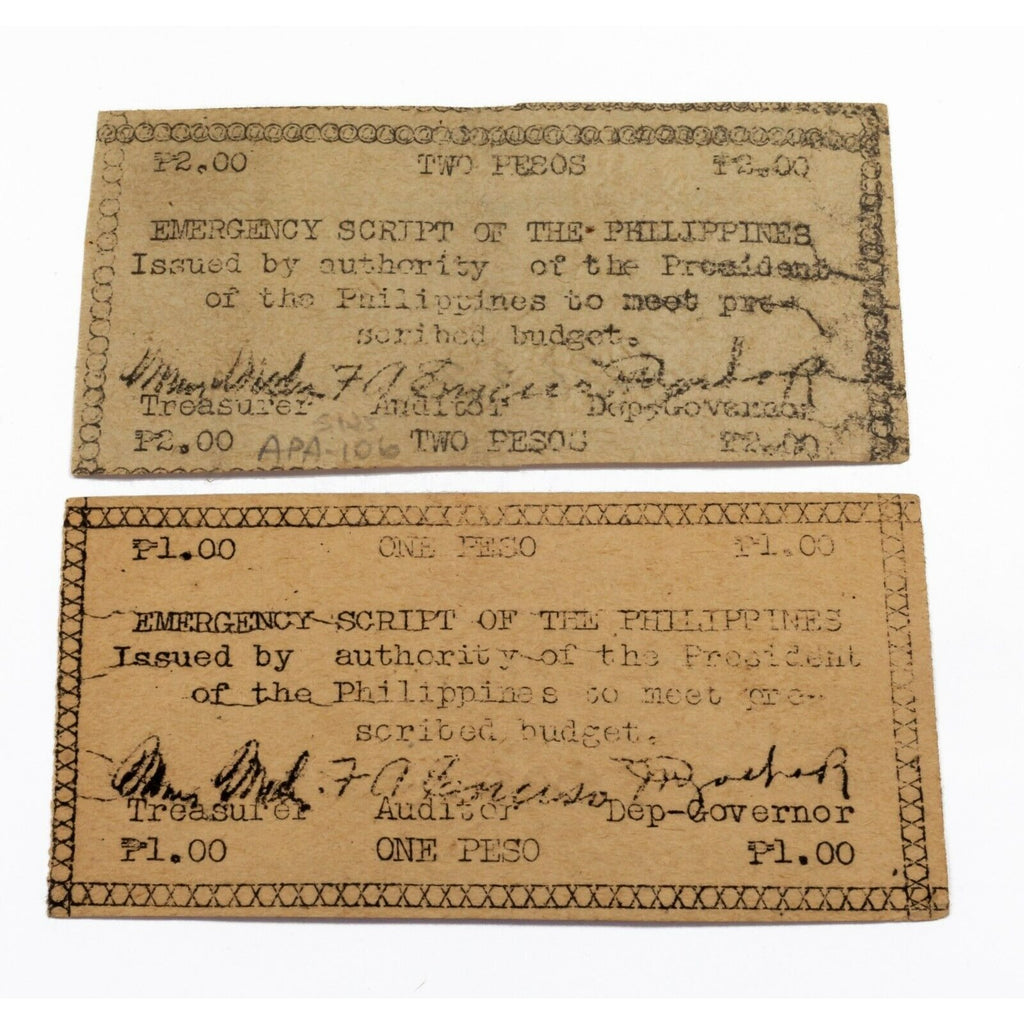 ₱2.00 TWO PESOS ₱2.00
EMERGENCY SCRIPT OF THE PHILIPPINES
Issued by authority of the President
of the Philippines to meet pre-
scribed budget.
Treasurer Auditor Dep-Governor
SNS
APA-106
₱2.00 TWO PESOS ₱2.00
₱1.00 ONE PESO ₱1.00
EMERGENCY SCRIPT OF THE PHILIPPINES
Issued by authority of the President
of the Philippines to meet pre-
scribed budget.
Treasurer Auditor Dep-Governor
₱1.00 ONE PESO ₱1.00